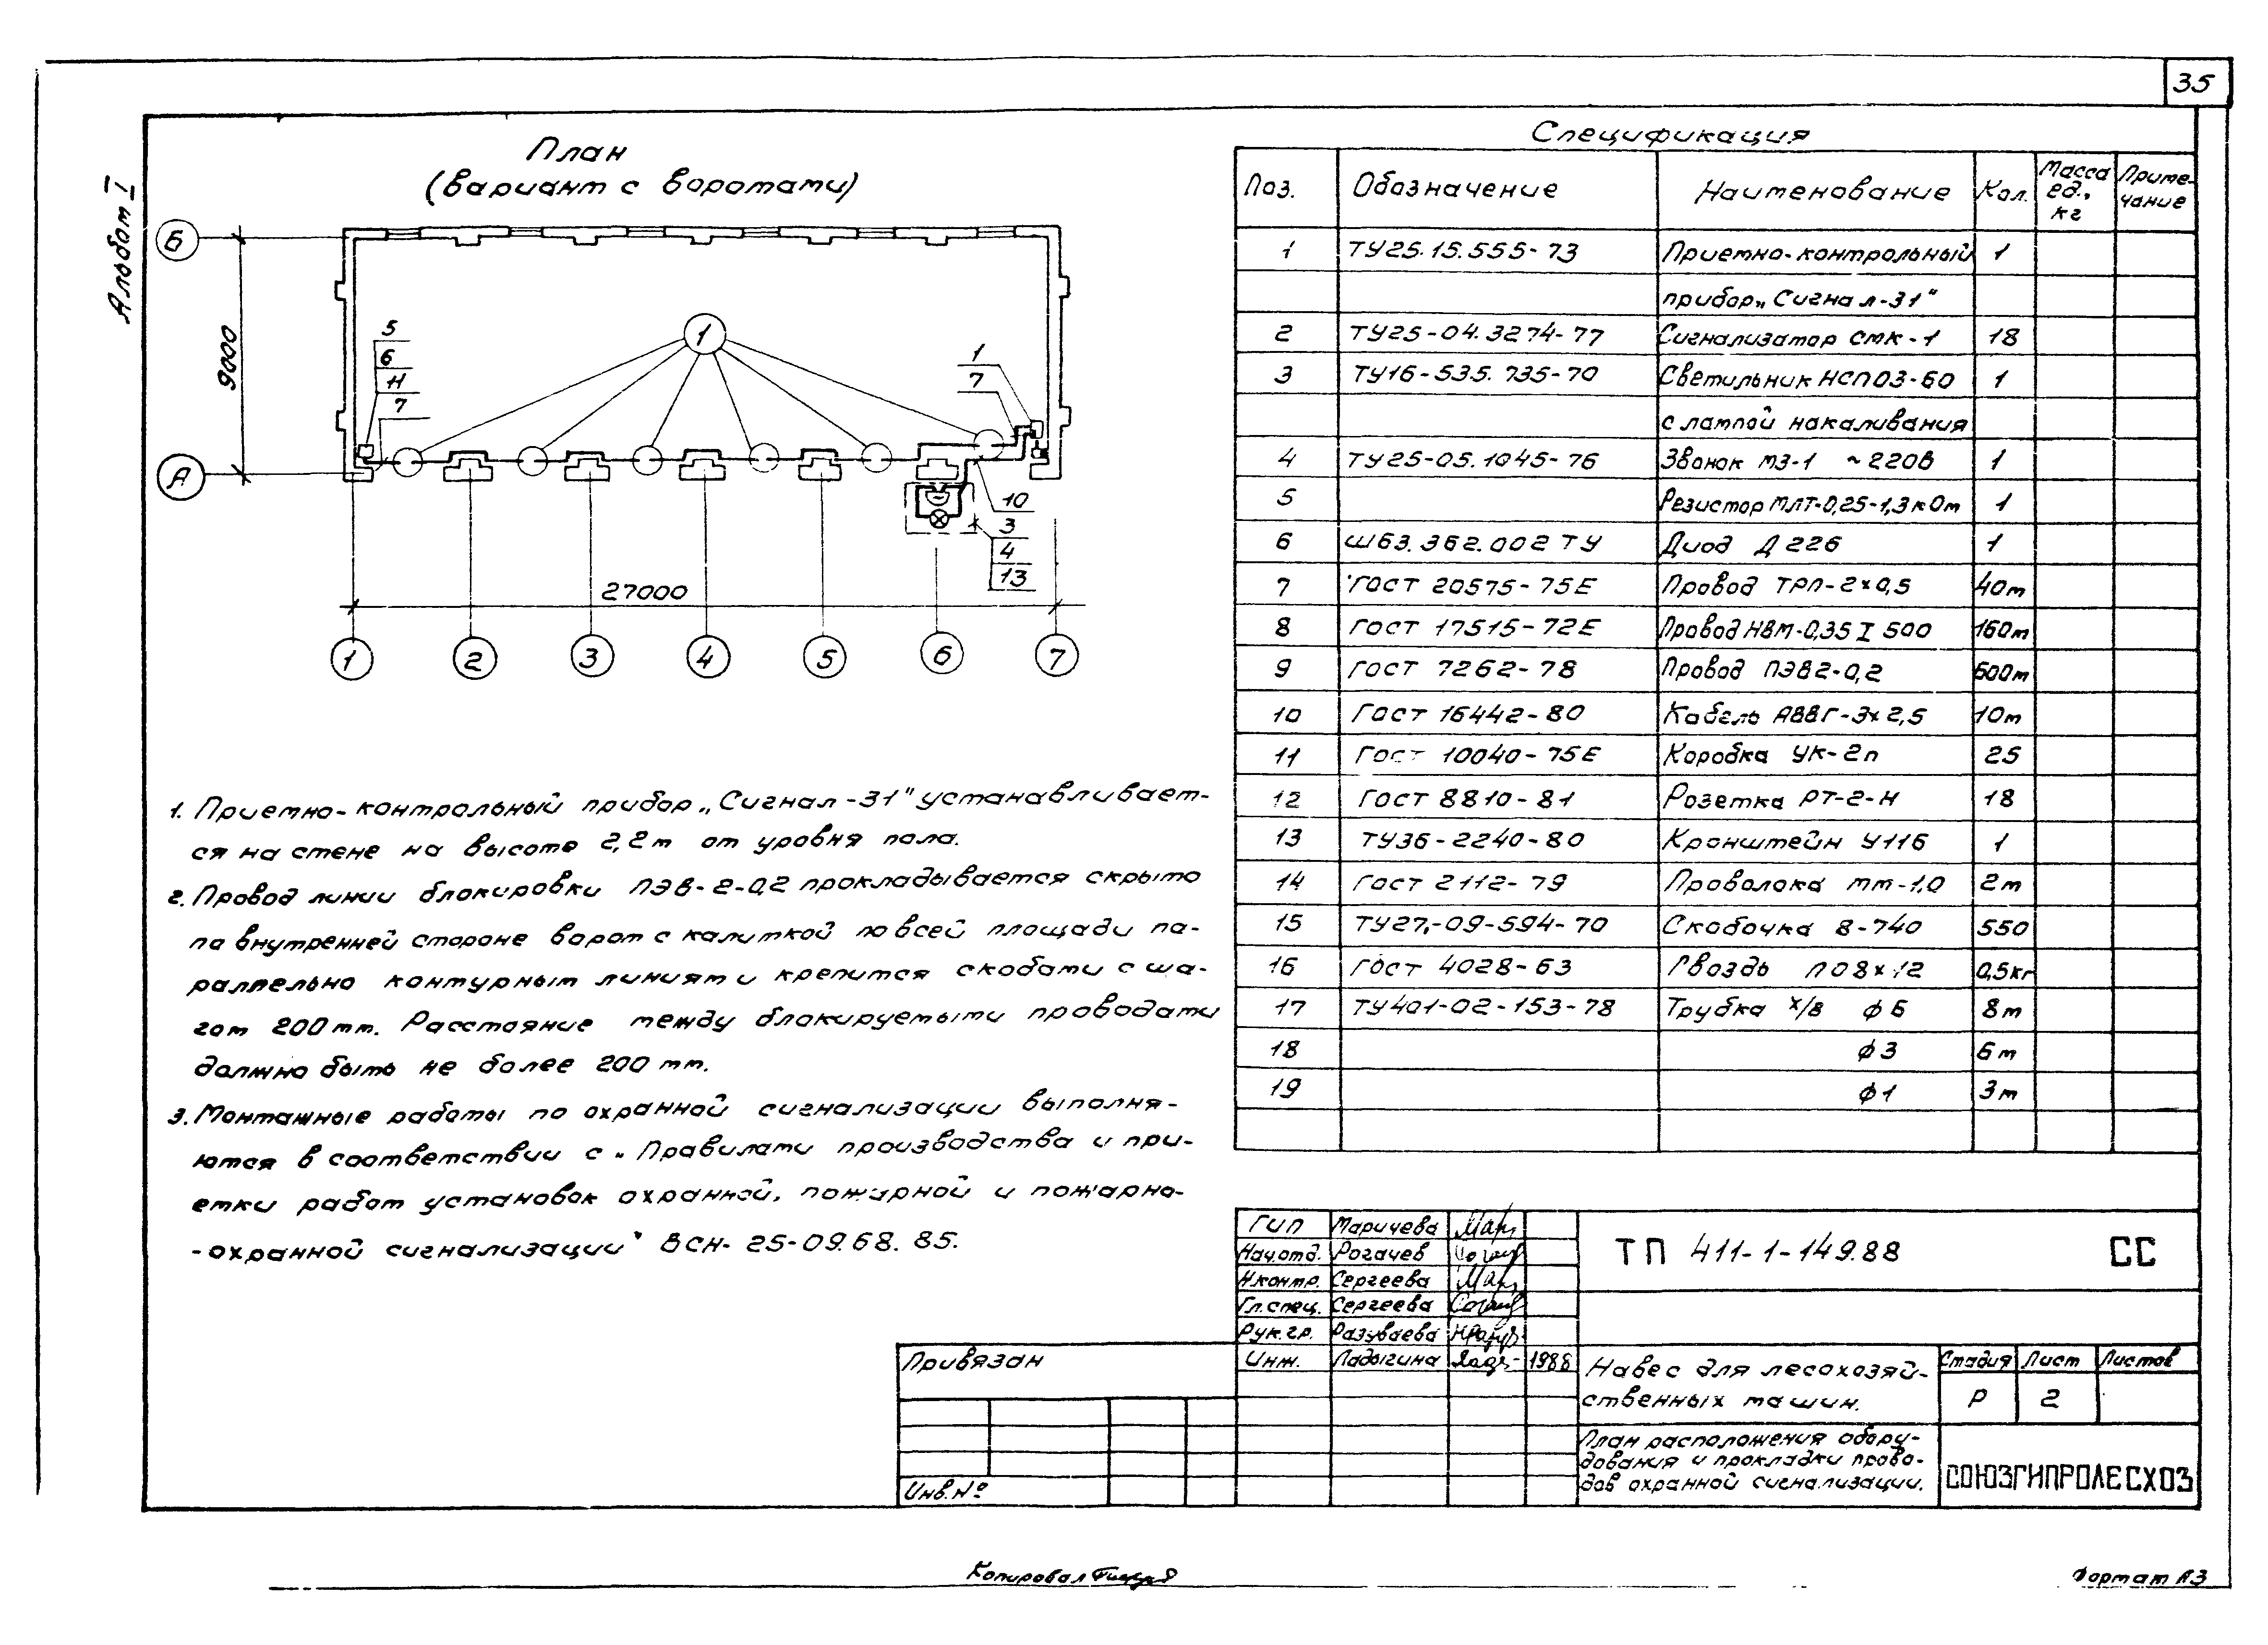 35
Альбом I
План
(вариант с воротами)
Б
А
9000
5
6
11
7
1
1
7
10
3
4
13
27000
1 2 3 4 5 6 7
1. Приемно-контрольный прибор „Сигнал-31" устанавливает-
ся на стене на высоте 2,2м от уровня пола.
2. Провод линии блокировки ПЭВ-2-0,2 прокладывается скрыто
по внутренней стороне ворот с калиткой по всей площади па-
раллельно контурным линиям и крепится скобами с ша-
гом 200мм. Расстояние между блокируемыми проводами
должно быть не более 200 мм.
3. Монтажные работы по охранной сигнализации выполня-
ются в соответствии с „Правилами производства и при-
емки работ установок охранной, пожарной и пожарно-
-охранной сигнализации" ВСН- 25-09.68. 85.
Спецификация
Поз. Обозначение Наименование Кол. Масса ед., кг Приме-чание
1 ТУ25.15.555-73 Приемно-контрольный 1
прибор „Сигнал-31"
2 ТУ25-04.3274-77 Сигнализатор СМК-1 18
3 ТУ16-535.735-70 Светильник НСП03-60 1
с лампой накаливания
4 ТУ25-05.1045-76 Звонок МЗ-1 ~220В 1
5 Резистор МЛТ-0,25-1,3кОм 1
6 Щ63.362.002 ТУ Диод Д226 1
7 ГОСТ 20575-75Е Провод ТРП-2х0,5 40м
8 ГОСТ 17515-72Е Провод НВМ-0,35 I 500 160м
9 ГОСТ 7262-78 Провод ПЭВ2-0,2 600м
10 ГОСТ 16442-80 Кабель АВВГ-3х2,5 10м
11 ГОСТ 10040-75Е Коробка УК-2п 25
12 ГОСТ 8810-81 Розетка РТ-2-Н 18
13 ТУ36-2240-80 Кронштейн У116 1
14 ГОСТ 2112-79 Проволока мм-1,0 2м
15 ТУ27-09-594-70 Скобочка 8-740 550
16 ГОСТ 4028-63 Гвоздь П08х12 0,5кг
17 ТУ401-02-153-78 Трубка х/в ф6 8м
18 ф3 6м
19 ф1 3м
ГИП Маричева
Нач.отд. Рогачев
Н.контр. Сергеева
Гл.спец. Сергеева
Рук.гр. Разуваева
Инж. Ладыгина 1988
ТП 411-1-149.88 СС
Привязан
Инв.№
Навес для лесохозяй-
ственных машин.
Стадия Лист Листов
Р 2
План расположения обору-
дования и прокладки прово-
дов охранной сигнализации.
СОЮЗГИПРОЛЕСХОЗ
Копировал
Формат А3